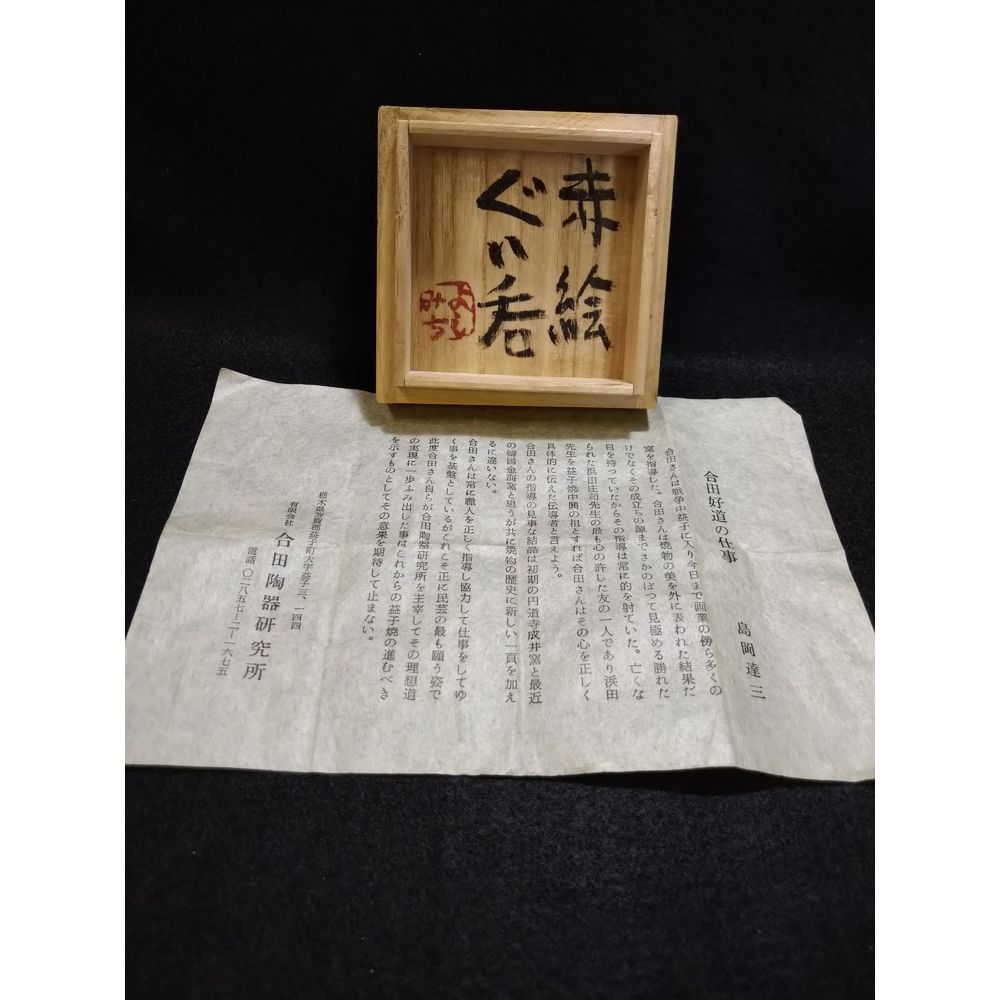 赤絵
ぐい呑
よしみち
合田好道の仕事
島岡達三
合田さんは戦争中益子に入り今日まで画業の傍ら多くの
窯を指導した。合田さんは焼物の美を外に表われた結果だ
けでなくその成立ちの源までさかのぼつて見極める勝れた
目を持つていたからその指導は常に的を射ていた。亡くな
られた浜田庄司先生の最も心の許した友の一人であり浜田
先生を益子焼中興の祖とすれば合田さんはその心を正しく
具体的に伝えた伝導者と言えよう。
合田さんの指導の見事な結晶は初期の円道寺成井窯と最近
の韓国金海窯と思うが共に焼物の歴史に新しい一頁を加え
るに違いない。
合田さんは常に職人を正しく指導し協力して仕事をしてゆ
く事を基盤としているがこれこそ正に民芸の最も願う姿で
此度合田さん自らが合田陶器研究所を主宰してその理想道
の実現に一歩ふみ出した事はこれからの益子焼の進むべき
を示すものとしてその意果を期待して止まない。
栃木県芳賀郡益子町大字益子三、一四四
有限会社 合田陶器研究所
電話〇二八五七-二-一六七五